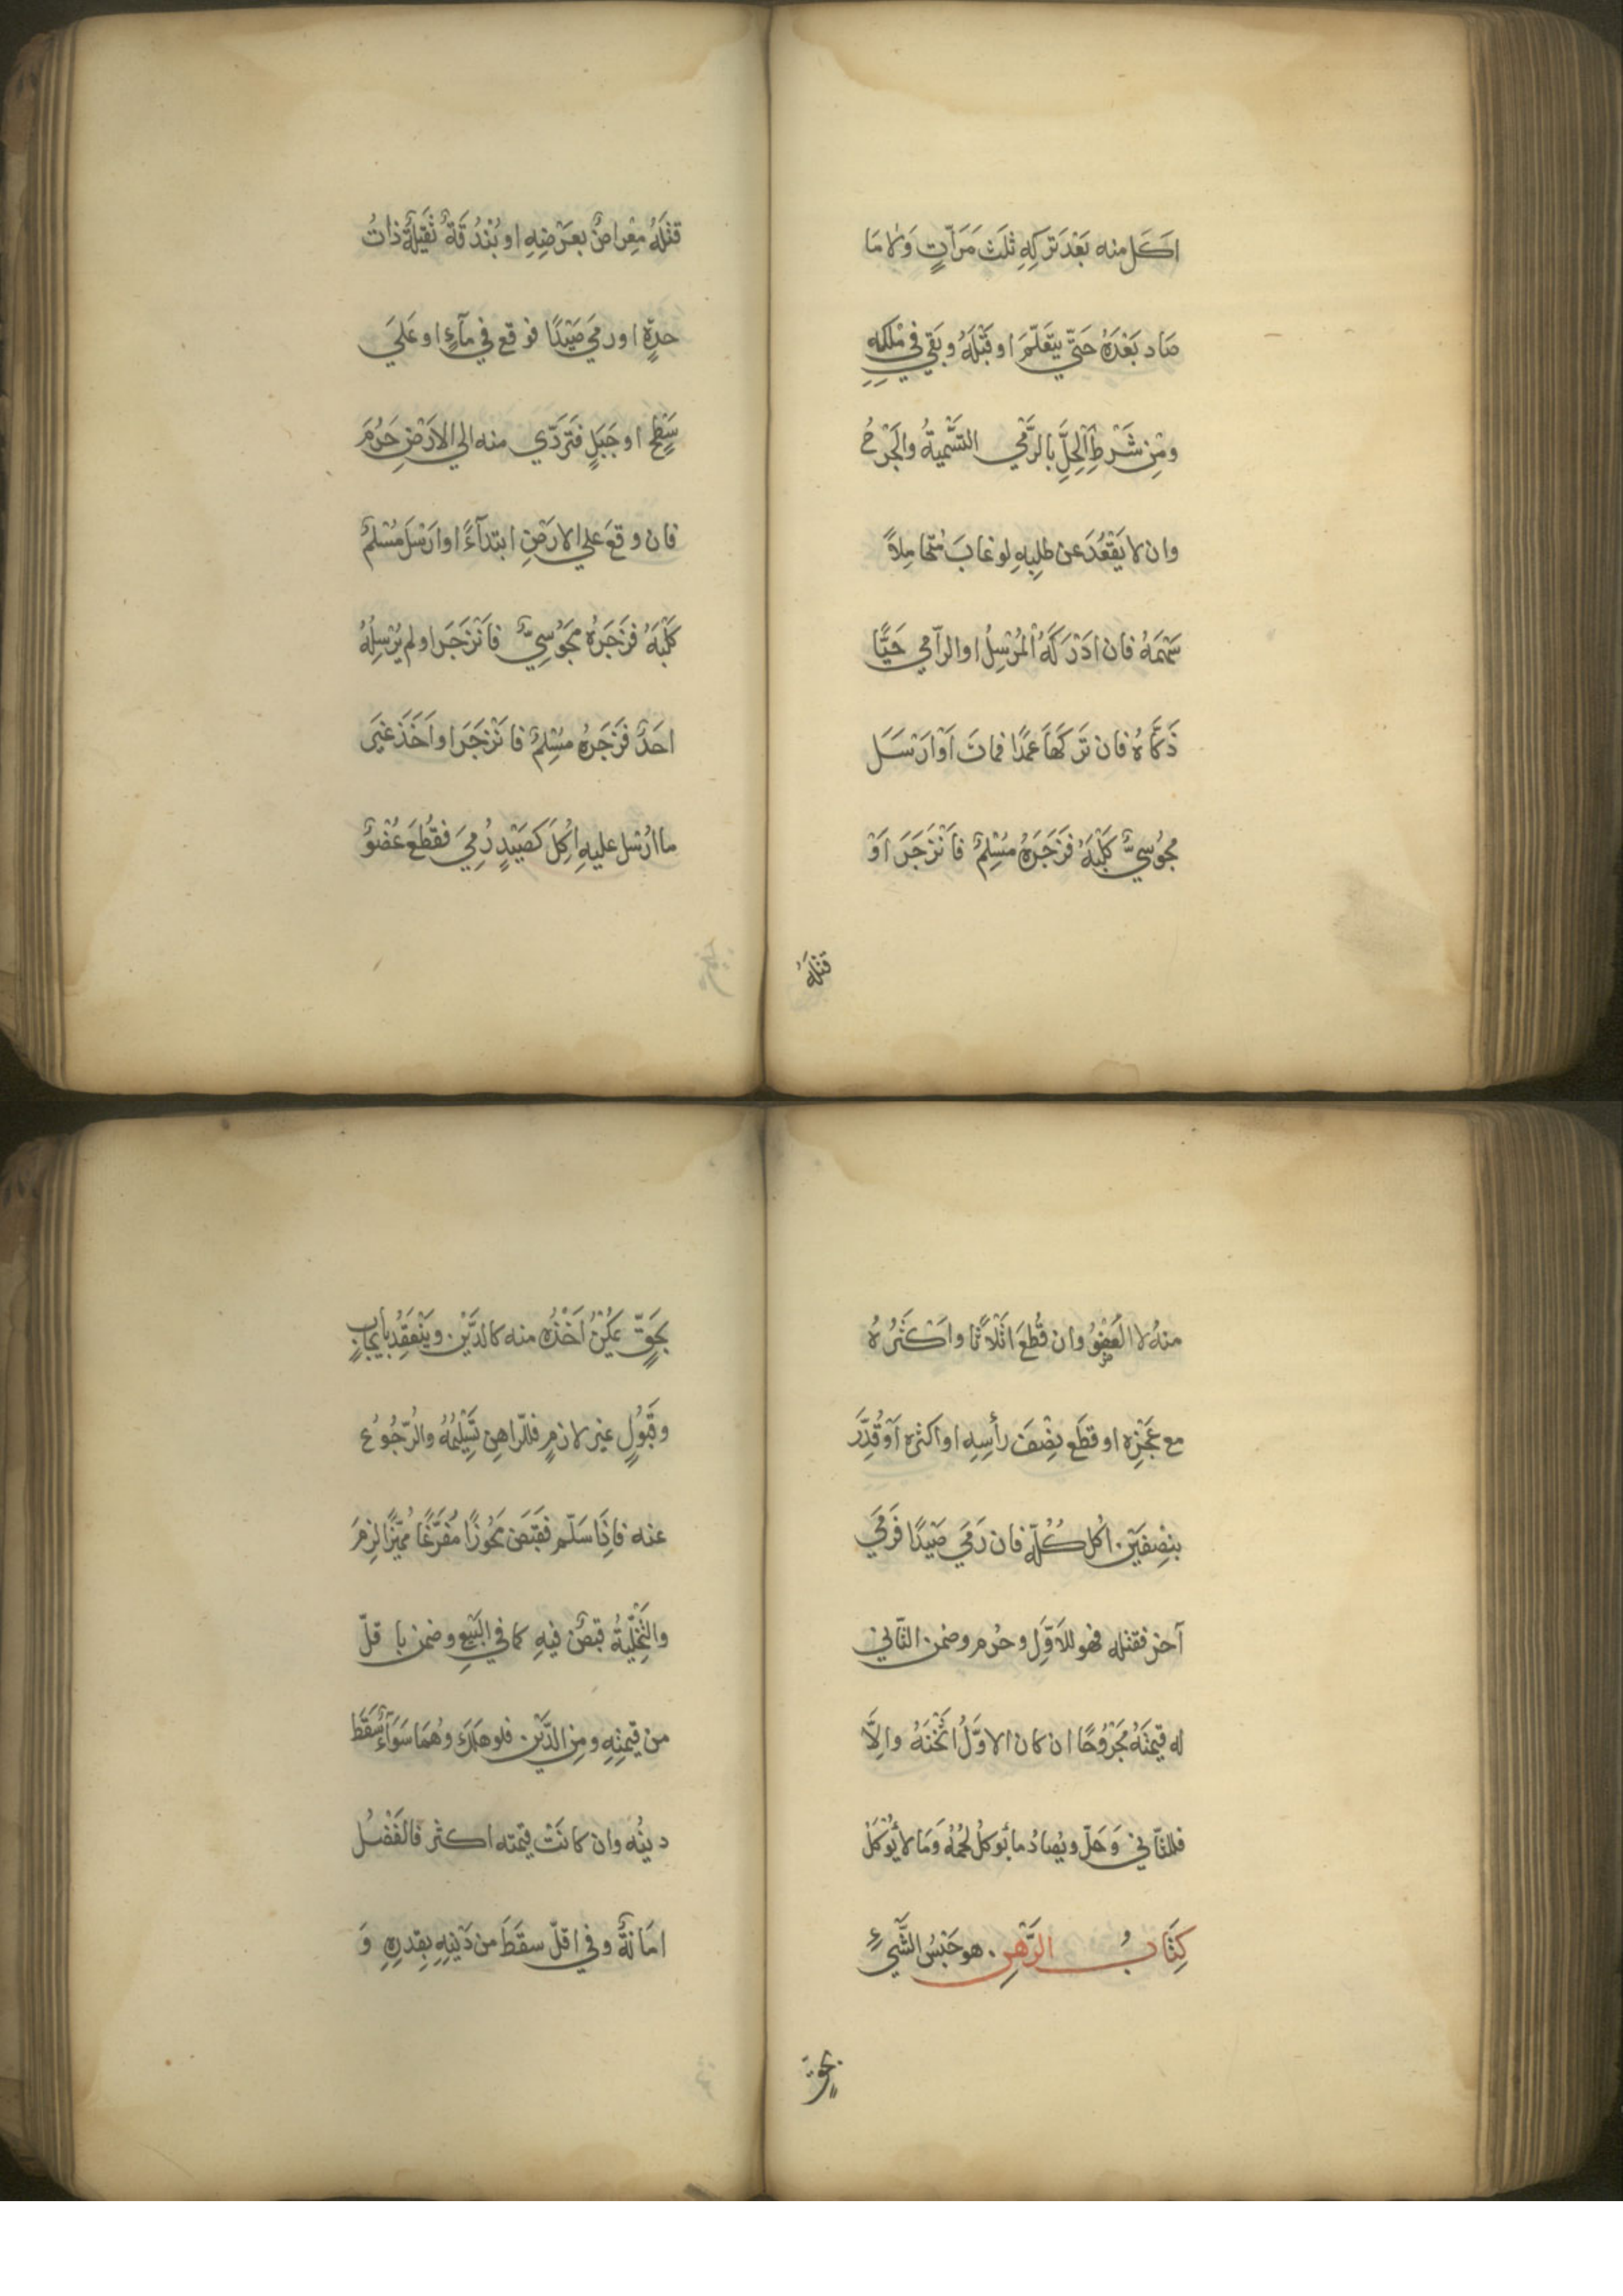 اَكَلَ منه بَعْدَ تَرْكِهِ ثلثَ مَرَّاتٍ وَلا مَا
صَادَ بَعْدَهُ حَتّي يَتَعَلّمَ او قَبْلَهُ وبَقِيَ في مِلْكِهِ
ومِن شَرْطِ الحِلِّ بالرَّمْي التَّسْميةُ والجَرْحُ
وان لا يَقْعُدَ عن طلبِهِ لو غابَ مُتحامِلاً
سَهْمَهُ فان ادْرَكَهُ الْمُرْسِلُ او الرَّامي حَيًّا
ذَكَّاهُ فان تَرَكَهَا عَمْدًا فماتَ اَوْ ارْسَلَ
مجُوسِيٌّ كَلْبَهُ فزَجَرَهُ مُسْلِمٌ فانْزَجَرَ اَوْ
قتلَهُ
قتلَهُ مِعْراضٌ بعَرْضِهِ او بُنْدُقَةٌ ثَقيلَةٌ ذاتُ
حدّةٍ او رمي صَيْدًا فوقع في مآءٍ او عَلَي
سَطْحٍ او جَبَلٍ فتَرَدّي منه الي الارْضِ حَرُمَ
فان وقَعَ علي الارْضِ ابتدآءً او ارْسَلَ مُسْلِمٌ
كَلْبَهُ فزَجَرَهُ مَجُوْسِيٌّ فانْزَجَرَ او لم يُرْسِلْهُ
احَدٌ فزَجَرَهُ مُسْلِمٌ فانْزَجَرَ او اَخَذَ غيرَ
ما اُرْسل عليهِ اُكِلَ كَصَيْدٍ رُمِيَ فقُطِعَ عُضْوٌ
منهُ لا العُضْوُ وان قُطِعَ اثْلاثًا واَكْثَرُهُ
مع عَجُزِهِ او قطَع نِصْفَ رأسِهِ او اكثرَه اَوْ قُدَّ
بنصْفَيْن اُكل كُلّهُ فان رَمَي صَيْدًا فرَمي
آخر فقتله فهو للاَوّلِ وحَرُم وضمن الثاني
له قيمتَهُ مَجْرُوْحًا ان كان الاوّلُ اثْخَنَهُ والاَّ
فللثّاني وَحَلّ ويُصادُ ما يُوكلُ لَحْمُهُ وَمَا لا يُؤْكَلُ
كِتَابُ الرَّهْنِ هو حَبْسُ الشَّيْءِ
بحَقٍّ
بحَقٍّ يمكِنُ اَخْذُهُ منه كالدَّيْنِ وَيَنْعَقِدُ بايجابٍ
وقَبُوْلٍ غير لازمٍ فللرّاهِنِ تسْليمُهُ والرُّجُوْعُ
عنه فاِذا سَلّم فقبَضَ مَحُوْزًا مُفَرَّغًا مميّزًا لزمَ
والتّخْلِيَةُ قبضٌ فيهِ كما في البَيْع وضمن با قلّ
من قيمتِهِ ومِن الدّيْن فلو هَلَكَ وهُمَا سَوَآءٌ سَقَطَ
دينُه وان كانَتْ قيمته اكثر فالفَضْلُ
امَانَةٌ وفي اقلّ سقَطَ من دَيْنِهِ بقِدرِهِ وَ